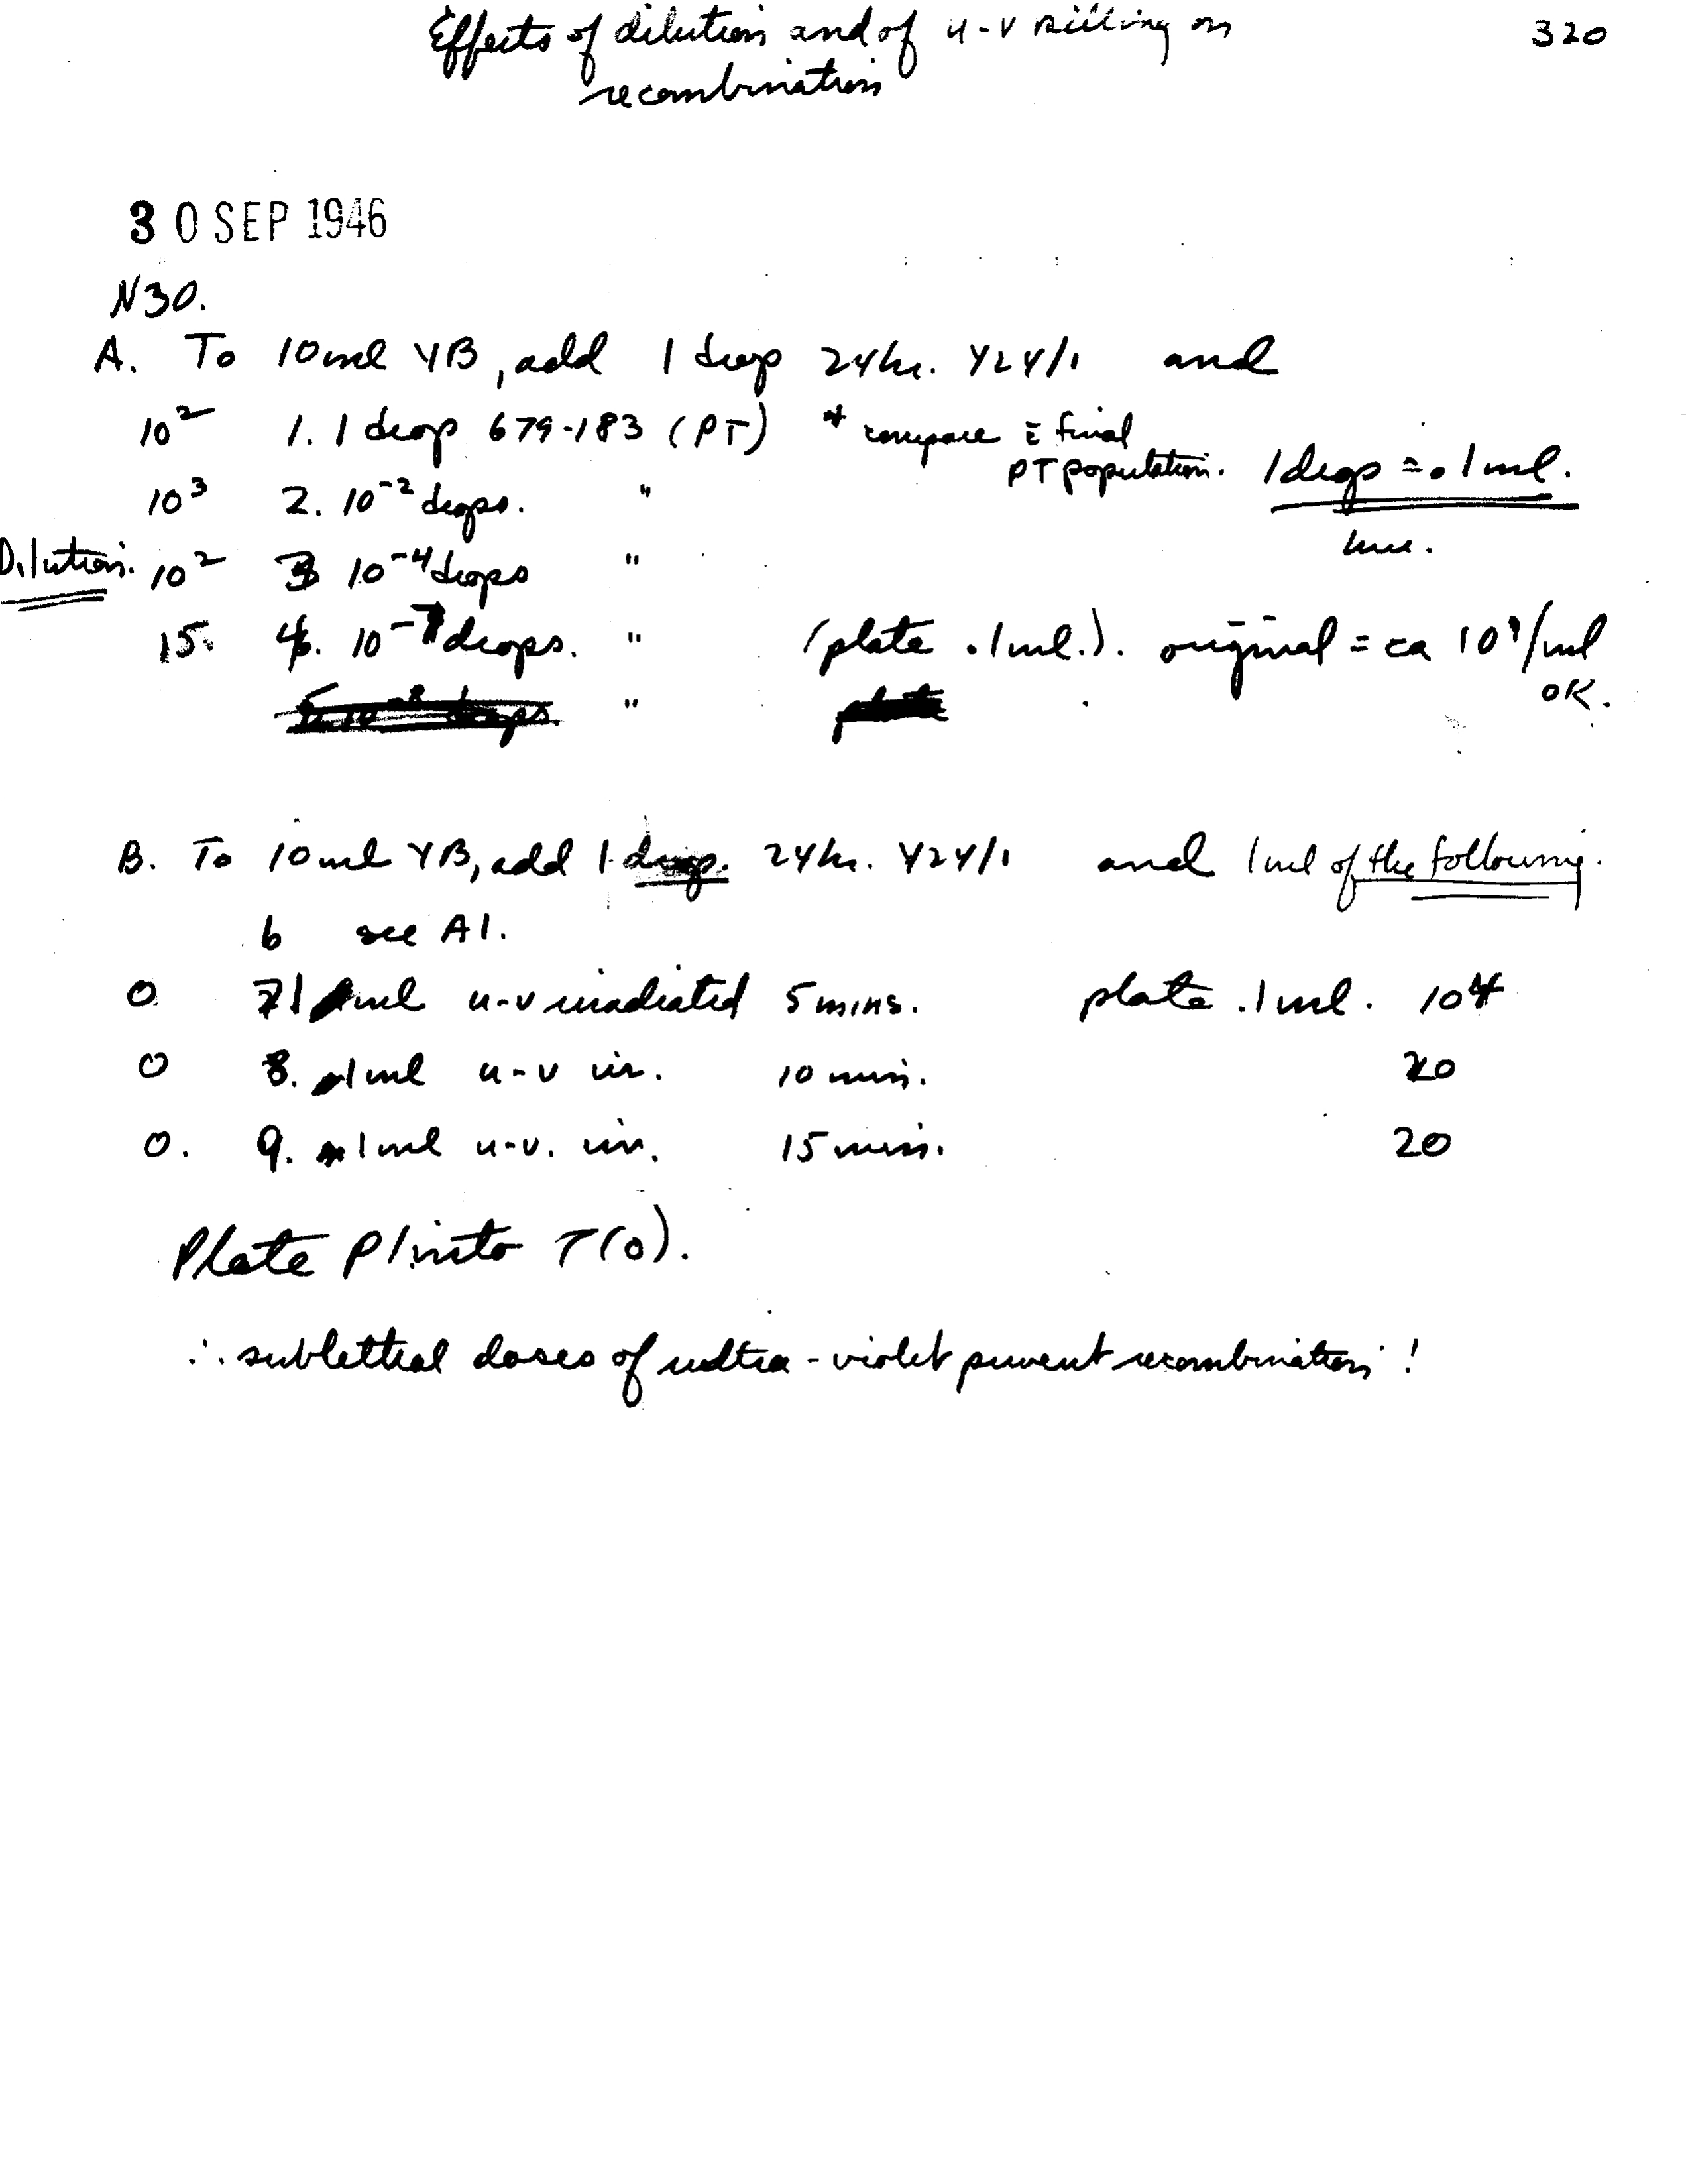 Effects of dilution and of u-v killing on 320
recombination
30 SEP 1946
N30.
A. To 10ml YB, add 1 drop 24hr. Y24/1 and
10² 1. 1 drop 679-183 (PT) * compare c̄ final
PT population. 1 drop = .1 ml.
10³ 2. 10⁻² drops. "
Dilution. 10² 3 10⁻⁴ drops "
15. 4. 10⁻⁷ drops. " (plate .1 ml.). original = ca 10⁹/ml
OK.
5. 10⁻⁸ drops. " plate
B. To 10ml YB, add 1 drop. 24hr. Y24/1 and 1ml of the following.
6 see A1.
0 7 1 ml u-v irradiated 5 mins. plate .1 ml. 104
0 8. 1 ml u-v irr. 10 min. 20
0. 9. 1 ml u-v. irr. 15 min. 20
Plate P1 into T(0).
∴ sublethal doses of ultra-violet prevent recombination!